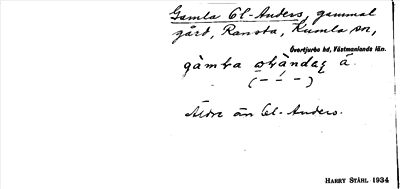 Gamla Ol-Anders, gammal
gård, Ransta, Kumla sn,
Övertjurbo hd, Västmanlands län.
gàmɬa
Äldre än Ol-Anders.
HARRY STÅHL 1934